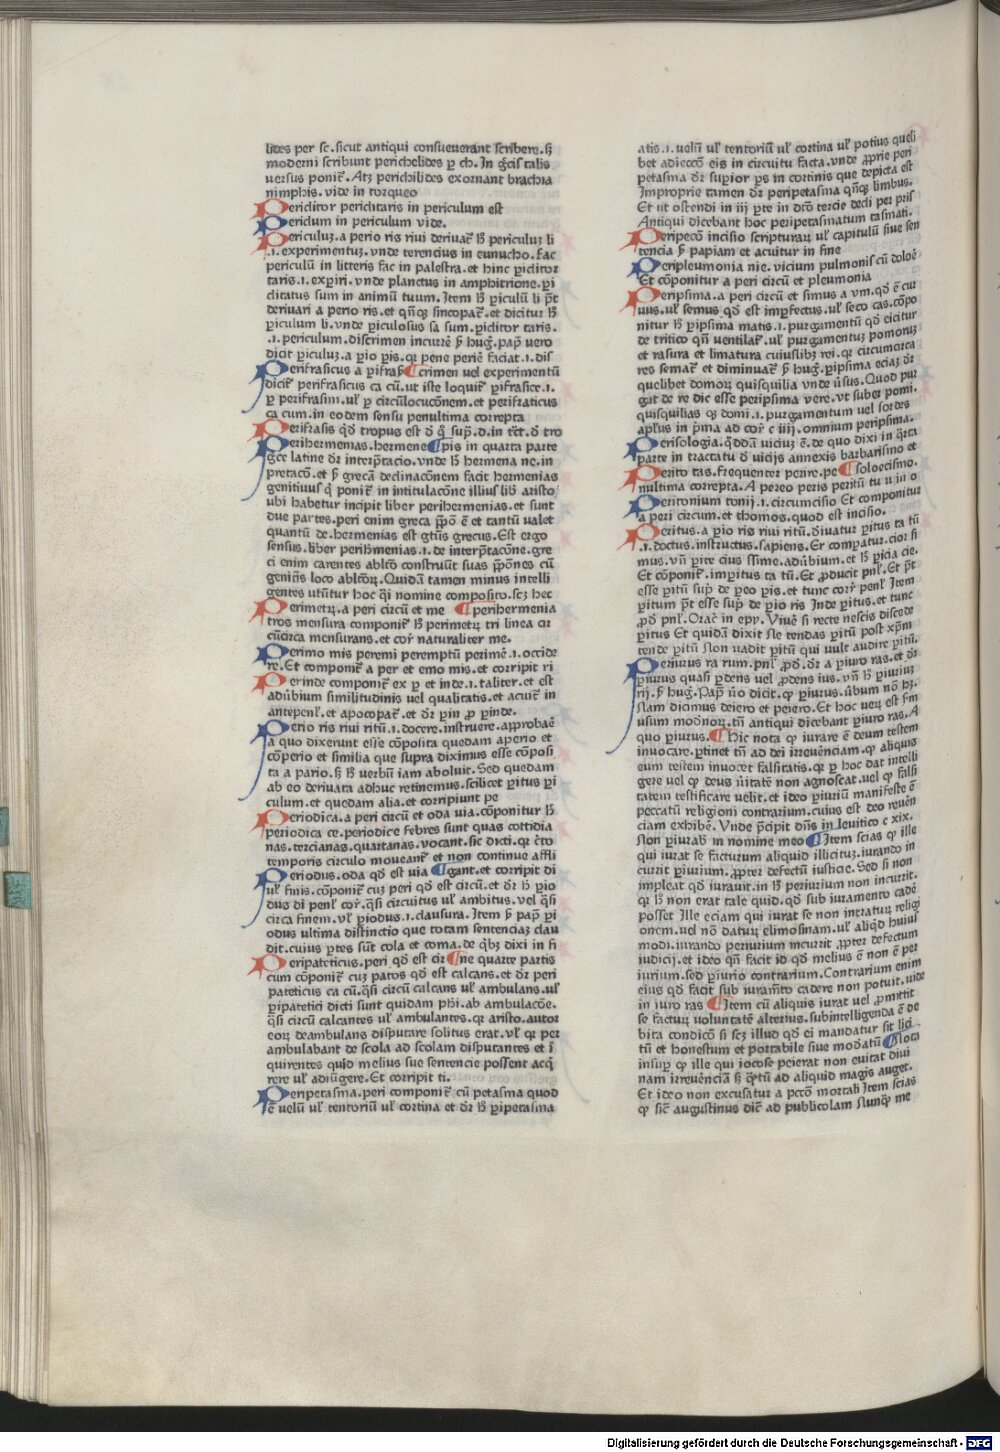 lides per sc. sicut antiqui consueuerant scribere. sꝫ
moderni scribunt perichelides ꝑ ch. In grecis talis
uersus ponit᷑. Atqꝫ perichilides exornant brachia
nimphis. vide in torqueo
Periditor periclitaris in periculum est
Peridum in periculum vide.
Periculuꝫ. a perio ris riui deriuat᷑ hꝰ periculuꝫ li
.i. experimentuꝫ. vnde terencius in eunucho. fac
periculū in litteris fac in palestra. et hinc ꝑiclitor
taris .i. exꝑiri. vnde planctus in amphitrione. ꝑi
clitatus sum in animū tuum. Item hꝰ ꝑiculū li pn̄t
deriuari a perio ris. et qn̄qꝫ sincopat᷑. et dicitur hꝰ
ꝑiculum li. vnde ꝑiculosus sa sum. ꝑiclitor taris.
.i. periculum. discrimen incurrē ẜm hug̃. pap̄ vero
dicit ꝑiculuꝫ. a ꝑio ꝑis. qꝛ pene periē faciat .i. dis
Perifrasticus a ꝑifraẜ ¶crimen uel experimentū
dicit᷑ perifrasticus ca cū. ut iste loquit᷑ ꝑifrastice .i.
ꝑ perifrasim. ul᷑ ꝑ circūlocucōnem. et perifraticus
ca cum. in eodem sensu penultima correpta
Perifrasis qď tropus est ď q̄ sup̄. d. in tc̄t. ď tro
Perihermenias. hermene ¶pis in quarta parte
gc̄e latine dr̄ interp̄tacio. vnde hꝰ hermena ne. in
pretacō. et ẜ grecā declinacōnem facit hermenias
genitiuus q̄ ponit᷑ in intitulacōne illius lib̄ aristo
ubi habetur incipit liber perihermenias. et sunt
due partes. peri enim greca ꝓpō ē et tantū ualet
quantū de. hermenias est gtūs grecus. Est ergo
sensus. liber perih̄menias .i. de interp̄tacōne. gre
ci enim carentes ablt̄o construūt suas ꝓpōnes cū
genit̄is loco ablt̄oꝝ. Quidā tamen minus intelli
gentes utūtur hoc q̄i nomine composito. scꝫ hec
Perimetꝝ. a peri circū et me ¶perihermenia
tros mensura componit᷑ hꝰ perimetꝝ tri linea cir
cūcirca mensurans. et cor᷑ naturaliter me.
Perimo mis peremi peremptū perimē .i. occide
re. Et componit᷑ a per et emo mis. et corripit ri
Perinde componit᷑ ex ꝑ et inde .i. taliter. et est
adūbium similitudinis uel qualitatis. et acuit᷑ in
antepenl᷑. et apocopat᷑. et dr̄ ꝑin ꝓ ꝑinde.
Perio ris riui ritū .i. docere. instruere. approbaē
a quo dixerunt esse cōposita quedam aperio et
cōperio et similia que supra diximus esse cōposi
ta a pario. sꝫ hꝰ verbū iam aboluit. Sed quedam
ab eo deriuata adhuc retinemus. scilicet ꝑitus ꝑi
culum. et quedam alia. et corripiunt pe
Periodica. a peri circū et oda via. cōponitur hꝰ
periodica ce. periodice febres sunt quas cottidia
nas. tercianas. quartanas. vocant. sic dicti. qꝛ c̄to
temporis circulo moueant᷑ et non continue affli
Periodus. oda qď est via ¶gant. et corripit di
ul᷑ finis. cōponit᷑ cuꝫ peri qď est circū. et dr̄ hꝰ ꝑio
dus di penl᷑ cor᷑. q̄si circuitus ul᷑ ambitus. vel q̄si
circa finem. vl᷑ ꝑiodus .i. clausura. Item ẜ pap̄ ꝑi
odus ultima distinctio que totam sentenciaꝫ clau
dit. cuius ꝑtes sūt cola et coma. de q̄bꝫ dixi in fi
Peripateticus. peri. qď est cir ¶ne quarte partis
cum cōponit᷑ cuꝫ patos qď est calcans. et dr̄ peri
pateticus ca cū. q̄si circū calcans ul᷑ ambulans. ul᷑
ꝑipatetici dicti sunt quidam ph̄i. ab ambulacōe.
q̄si circū calcantes ul᷑ ambulantes. qꝛ aristo. autor
eoꝝ deambulans disputare solitus erat. vl᷑ qꝛ per
ambulabant de scola ad scolam disputantes et ī
quirentes quid melius sue sentencie possent acq̄
rere ul᷑ adiūgere. Et corripit ti.
Peripetasma. peri componit᷑ cū petasma quod
ē uelū ul᷑ tentoriū ul᷑ cortina et dr̄ hꝰ ꝑipetasma
atis .i. uelū ul᷑ tentoriū ul᷑ cortina ul᷑ potius queli
bet adieccō eis in circuitu facta. vnde ꝓprie peri
petasma dr̄ suꝑior ꝑs in cortinis que depicta est
Improprie tamen dr̄ peripetasma qn̄qꝫ limbus.
Et ut ostendi in iij ꝑte in dcō̄ tercie decli per pris
Antiqui dicebant hoc peripetasmatum tasmati.
Peripecō incisio scripturaꝝ ul᷑ capitulū siue sen
tencia ẜ papiam et acuitur in fine
Peripleumonia nie. vicium pulmonis cū doloē
Et cōponitur a peri circū et pleumonia
Peripsima. a peri circū et simus a vm. qď ē cur
uus. ul᷑ semus qď est imꝑfectus. ul᷑ seco cas. cōpo
nitur hꝰ ꝑipsima matis .i. purgamentū qď eicitur
de tritico qn̄ ventilat᷑. ul᷑ purgamentuꝫ pomoꝝ
et rasura et limatura cuiuslibꝫ rei. qꝛ circumcirca
res semat᷑ et diminuat᷑ ẜ hug̃. ꝑipsima eciaꝫ dr̄
quelibet domoꝝ quisquilia vnde ūsus. Quod pur
gat de re dic esse peripsima vere. vt suber pomi.
quisquilias qꝫ domi .i. purgamentum uel sordes
apl᷑us in p̄ma ad cor᷑ c iiij. omnium peripsima.
Perisologia. q̄dā uiciuꝫ ē. de quo dixi in q̄rta
parte in tractatu ď vicijs annexis barbarismo et
Perito tas. frequenter perire. pe ¶soloecismo.
nultima correpta. A pereo peris peritū tu u in o
Peritonium tonij .i. circumcisio Et componitur
a peri circum. et thomos. quod est incisio.
Peritus. a ꝑio ris riui ritū. ďiuatur ꝑitus ta tū
.i. doctus. instructus. sapiens. Et comꝑatur. cior si
mus. vn̄ ꝑite cius ssime. adūbium. et hꝰ ꝑicia cie.
Et cōponit᷑. imꝑitus ta tū. Et ꝓducit pnl᷑. Et pn̄t
esse ꝑitū sup̄ de ꝑeo ꝑis. et tunc cor᷑ penl᷑ Item
ꝑitum pn̄t esse sup̄ de ꝑio ris Inde ꝑitus. et tunc
ꝓď pnl᷑. Orac̄ in epy. Viuē si recte nescis discede
ꝑitus Et quidā dixit Ne tendas ꝑitū post xp̄m
tende ꝑitū Non uadit ꝑitū qui vult audire ꝑitū.
Periurus ra rum. pnl᷑ ꝓď. dr̄ a ꝑiuro ras. et dr̄
ꝑiurus quasi ꝑdens uel ꝓdens ius. vn̄ hꝰ ꝑiuriuꝫ
rij. ẜ hug̃. Pap̄ ūo dicit. ꝙ ꝑiurus. ūbum nō hꝫ.
Nam dicimus deiero et peiero. Et hoc ueꝝ est ẜm
usum modnoꝝ. tn̄ antiqui dicebant ꝑiuro ras. A
quo ꝑiurus. ¶Hic nota ꝙ iurare ē deum testem
inuocare. ꝑtinet tn̄ ad dei irreuēnciam. ꝙ aliquis
eum testem inuocet falsitatis. qꝛ ꝑ hoc dat intelli
gere uel ꝙ deus ūitatē non agnoscat. uel ꝙ falsi
tatem testificare velit. et ideo ꝑiuriū manifeste ē
peccatū religioni contrarium. cuius est deo reuēn
ciam exhibē. Vnde p̄cipit dn̄s in leuitico c xix.
Non ꝑiurab̄ in nomine meo ¶Item scias ꝙ ille
qui iurat se facturum aliquid illicituꝫ. iurando in
currit ꝑiurium. ꝓpter defectū iusticie. Sed si non
impleat qď iurauit. in hꝰ periurium non incurrit.
qꝛ hꝰ non erat tale quid. qď sub iuramento cadē
posset Ille eciam qui iurat se non intratuꝝ religi
onem. uel nō datuꝝ elimosinam. ul᷑ aliqď huius
modi. iurando periurium incurrit ꝓpter defectum
iudicij. et ideo qn̄ facit id qď melius ē non ē per
iurium. sed ꝑiurio contrarium. Contrarium enim
eius qď facit sub iuram̄to cadere non potuit. vide
in iuro ras ¶Item cū aliquis iurat uel ꝓmittit
se factuꝝ voluntatē alterius. subintelligenda ē de
bita condicō si scꝫ illud qď ei mandatur sit lici
tū et honestum et portabile siue modatū ¶Nota
insuꝑ ꝙ ille qui iocose peierat non euitat diui
nam irreuēnciā sꝫ q̄tū ad aliquid magis auget.
Et ideo non excusatur a pccō mortali Item scias
ꝙ sic̄ augustinus dic̄ ad publicolam Nunqꝫ me
Digitalisierung gefördert durch die Deutsche Forschungsgemeinschaft - DFG